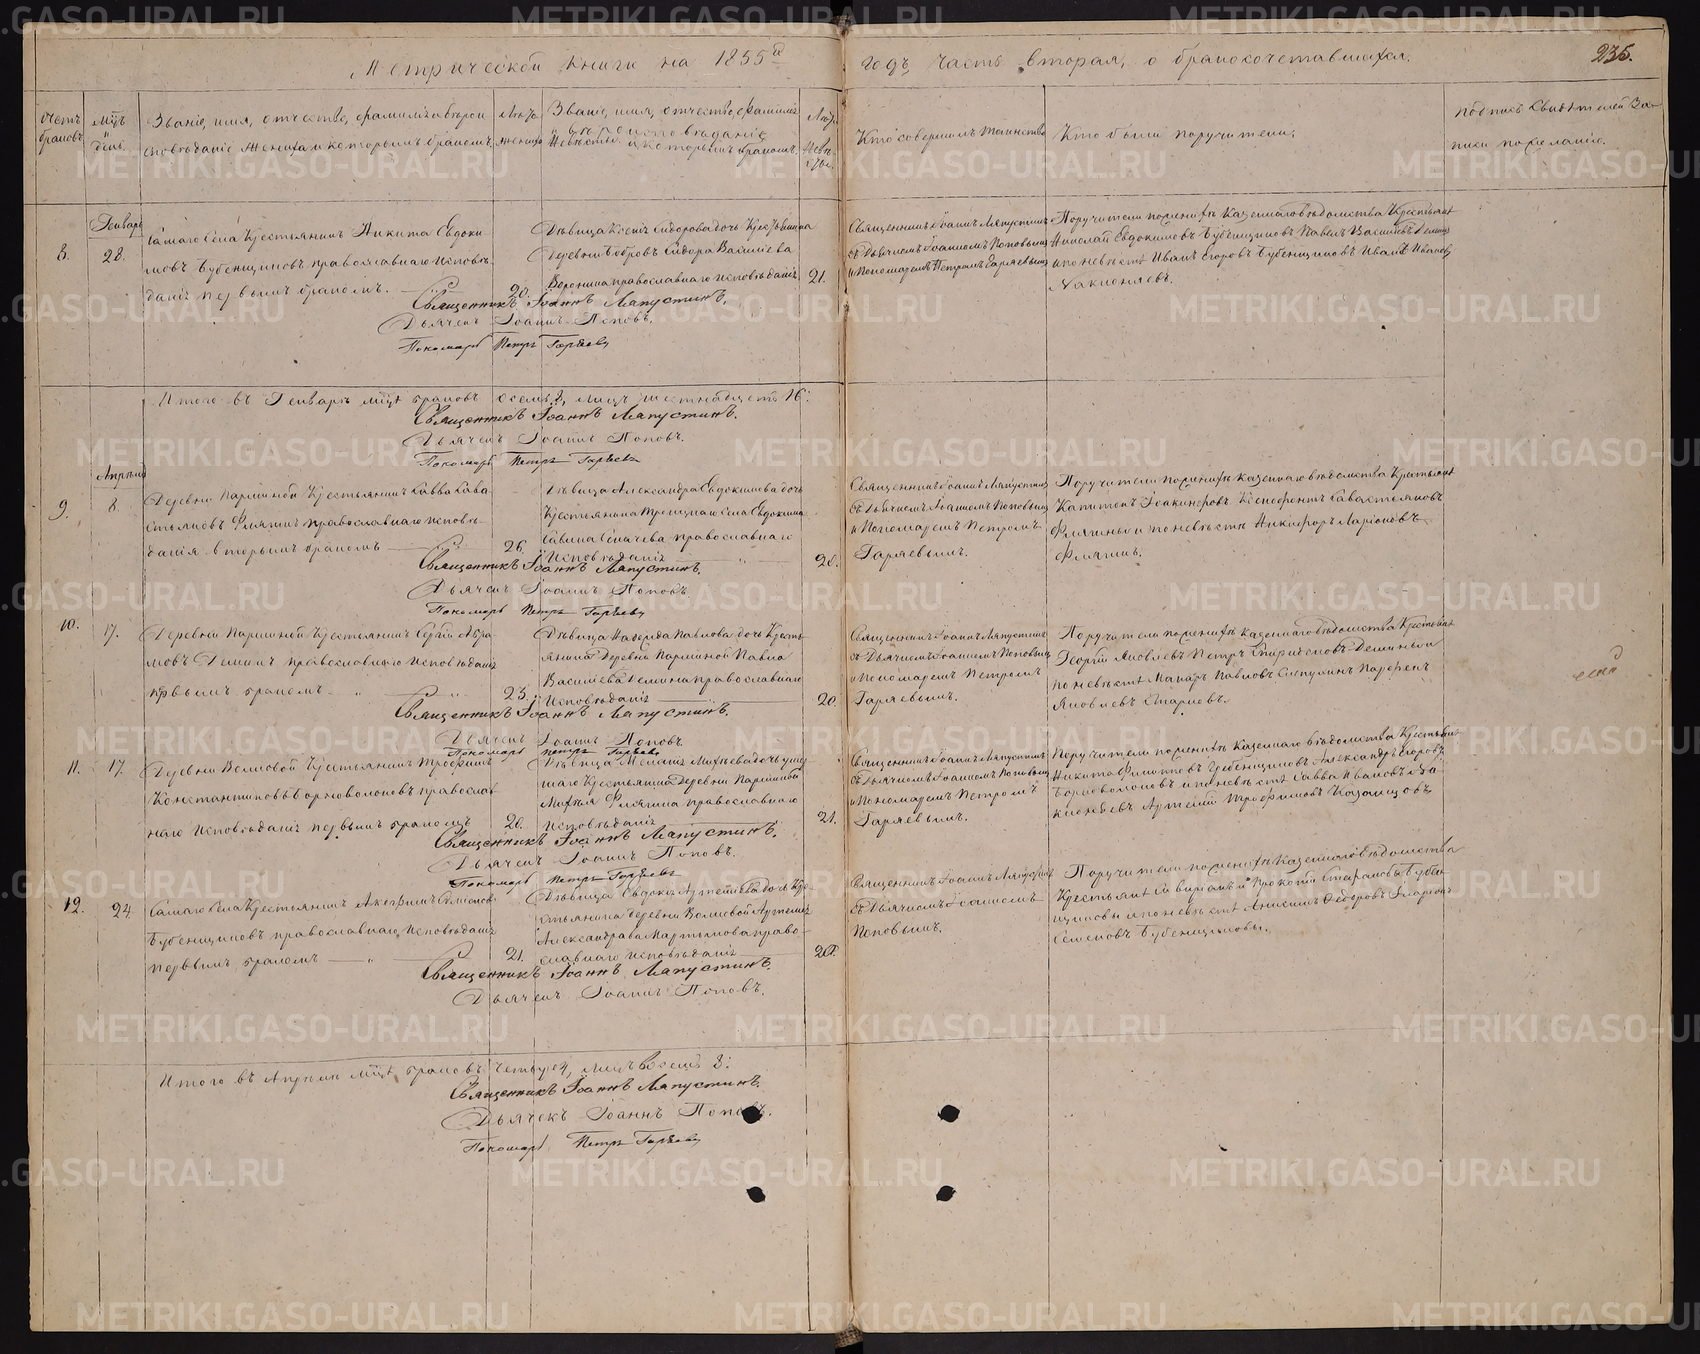 Метрической книги на 1855й
годъ часть вторая, о бракосочетавшихся.
235.
Счетъ браковъ.
Мѣсяцъ и день.
Званіе, имя, отчество, фамилія и вѣрои
сповѣданіе жениха и которымъ бракомъ.
Лѣта жениха
Званіе, имя, отчество, фамилія
и вѣроисповѣданіе
невѣсты и которымъ бракомъ.
Лѣта невѣсты.
Кто совершилъ таинство
Кто были поручители.
Подпись свидѣтелей за-
писи по желанію.
Генварь
8.
28.
Самаго села крестьянинъ Никита Евдоки
мовъ Бубенщиковъ православнаго исповѣ-
данія первымъ бракомъ.
20.
Дѣвица Ксенія Сидорова дочь крестьянина
Деревни Бобровъ Сидора Василіева
Воронина православнаго исповѣданія
21.
Священникъ Іоаннъ Ляпустинъ
съ Дьячкомъ Іоанномъ Поповымъ
и Пономаремъ Петромъ Гаряевымъ
Поручители по женихѣ казеннаго вѣдомства крестьяне
Николай Евдокимовъ Бубенщиковъ Павелъ Васильевъ
а по невѣстѣ Иванъ Егоровъ Бубенщиковъ Иванъ Ивановъ
Священникъ Іоаннъ Ляпустинъ.
Дьячекъ Іоаннъ Поповъ.
Пономарь Петръ Гаряевъ
Итого въ Генварѣ мцѣ браковъ восемь 8, лицъ шестнадцать 16:
Священникъ Іоаннъ Ляпустинъ.
Дьячекъ Іоаннъ Поповъ.
Пономарь Петръ Гаряевъ
Апрѣль
9.
8.
Деревни Паршиной крестьянинъ Савва Сава-
стьяновъ Флягинъ православнаго исповѣ-
данія вторымъ бракомъ
26.
Дѣвица Александра Евдокимова дочь
крестьянина Троицкаго села Евдокима
православнаго
исповѣданія
28.
Священникъ Іоаннъ Ляпустинъ
съ Дьячкомъ Іоанномъ Поповымъ
и Пономаремъ Петромъ
Гаряевымъ.
Поручители по женихѣ казеннаго вѣдомства крестьяне
Капитонъ Іоакимовъ Ксенофонтъ Савастьяновъ
Флягины и по невѣстѣ Никифоръ Ларіоновъ
Флягинъ.
Священникъ Іоаннъ Ляпустинъ.
Дьячекъ Іоаннъ Поповъ
Пономарь Петръ Гаряевъ
10.
17.
Деревни Паршиной крестьянинъ Сергій Абра-
мовъ Деминъ православнаго исповѣданія
первымъ бракомъ
23.
Дѣвица Надежда Павлова дочь кресть-
янина Деревни Паршиной Павла
Василіева Демина православнаго
исповѣданія
20.
Священникъ Іоаннъ Ляпустинъ
съ Дьячкомъ Іоанномъ Поповымъ
и Пономаремъ Петромъ
Гаряевымъ.
Поручители по женихѣ казеннаго вѣдомства крестьяне
Георгій Яковлевъ Петръ Спиридоновъ Демины
по невѣстѣ Макаръ Павловъ Слепухинъ Парфенъ
Яковлевъ Стариковъ.
Священникъ Іоаннъ Ляпустинъ.
Дьячекъ Іоаннъ Поповъ.
Пономарь Петръ Гаряевъ
11.
17.
Деревни Волковой крестьянинъ Трофимъ
Константиновъ Черноволоковъ православ
наго исповѣданія первымъ бракомъ
20.
Дѣвица Меланія Михѣева дочь умер
шаго крестьянина Деревни Паршиной
Михѣя Флягина православнаго
исповѣданія
21.
Священникъ Іоаннъ Ляпустинъ
съ Дьячкомъ Іоанномъ Поповымъ
и Пономаремъ Петромъ
Гаряевымъ.
Поручители по женихѣ казеннаго вѣдомства крестьяне
Никита Филиповъ Гребенщиковъ Александръ Егоровъ
Черноволоковъ и по невѣстѣ Савва Ивановъ
Артемій Трофимовъ Казанцовъ
Священникъ Іоаннъ Ляпустинъ.
Дьячекъ Іоаннъ Поповъ.
Пономарь Петръ Гаряевъ
12.
24.
Самаго села крестьянинъ Акепсимъ Семеновъ
Бубенщиковъ православнаго исповѣданія
первымъ бракомъ
21.
Дѣвица Евдокія Артемьева дочь кре-
стьянина деревни Волковой Артемія
Александрова Мартьянова право-
славнаго исповѣданія
20.
Священникъ Іоаннъ Ляпустинъ
съ Дьячкомъ Іоанномъ
Поповымъ.
Поручители по женихѣ казеннаго вѣдомства
крестьяне Северіанъ и Прокопій Стефановы Бубен
щиковы и по невѣстѣ Анисимъ Федоровъ
Семеновъ Бубенщиковы.
Священникъ Іоаннъ Ляпустинъ.
Дьячекъ Іоаннъ Поповъ.
Итого въ Апрѣлѣ мцѣ браковъ четыре 4, лицъ восемь 8:
Священникъ Іоаннъ Ляпустинъ.
Дьячекъ Іоаннъ Поповъ.
Пономарь Петръ Гаряевъ
METRIKI.GASO-URAL.RU